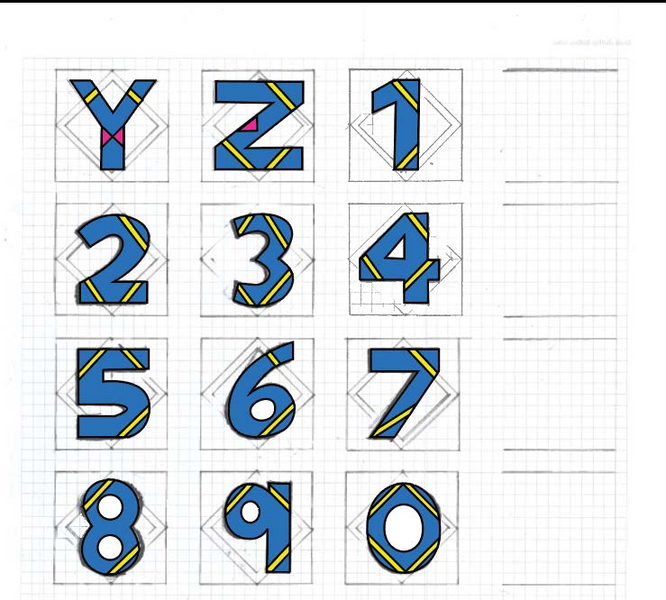 Y Z 1
2 3 4
5 6 7
8 9 0